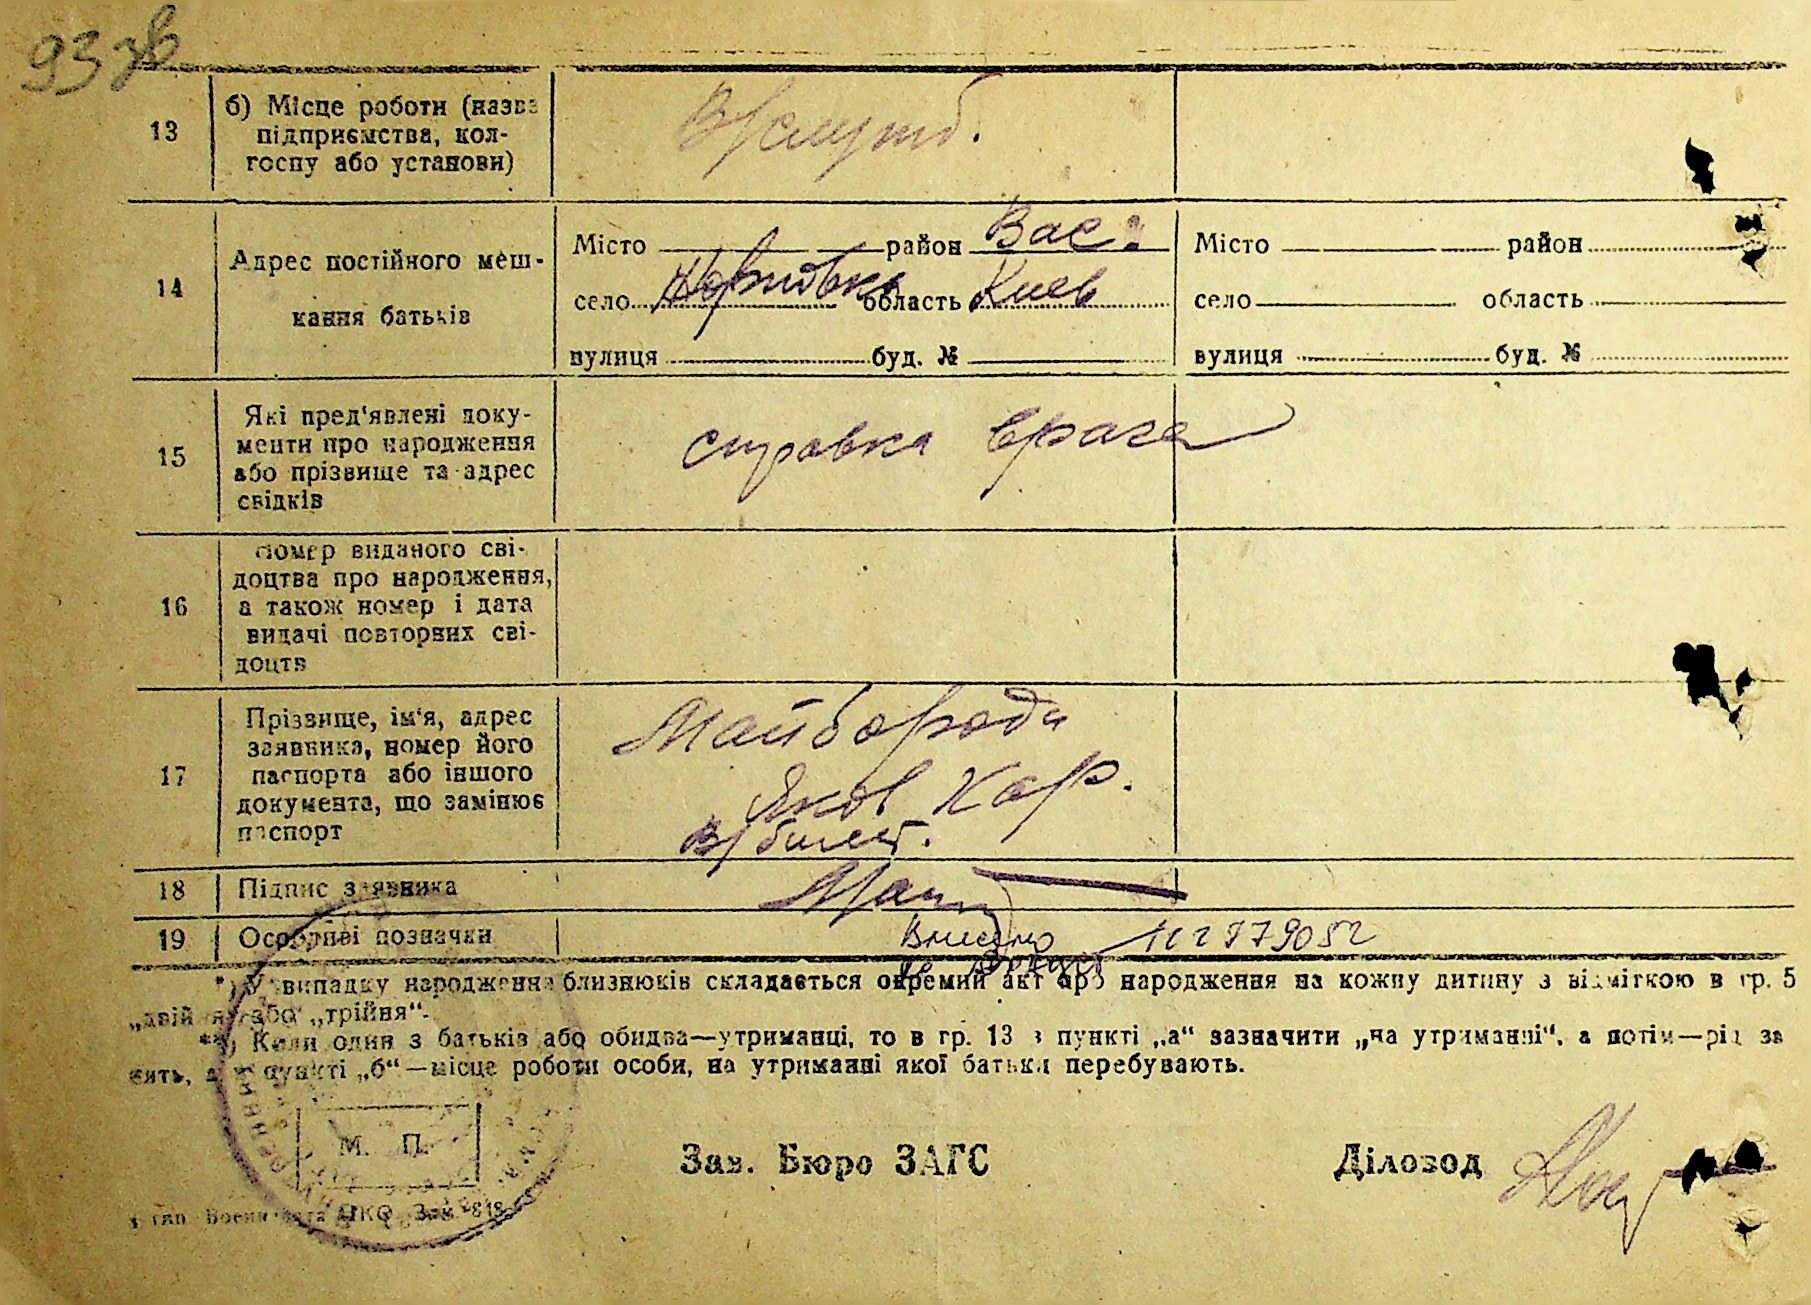 93 зв
13
б) Місце роботи (назва
підприємства, кол-
госпу або установи)
14
Адрес постійного меш-
кання батьків
Місто район Вас.
село область Киев
вулиця буд. №
Місто район
село область
вулиця буд. №
15
Які пред'явлені доку-
менти про народження
або прізвище та адрес
свідків
справка врача
16
Номер виданого сві-
доцтва про народження,
а також номер і дата
видачі повторних сві-
доцтв
17
Прізвище, ім'я, адрес
заявника, номер його
паспорта або іншого
документа, що замінює
паспорт
Майборода
Яков Кар.
в/билет.
18
Підпис заявника
19
Особливі позначки
Внесено
*) У випадку народження близнюків складається окремий акт про народження на кожну дитину з відміткою в гр. 5
„двійня" або „трійня".
**) Коли один з батьків або обидва—утриманці, то в гр. 13 в пункті „а" зазначити „на утриманні", а потім—рід за
нять, а в пункті „б"—місце роботи особи, на утриманні якої батьки перебувають.
М. П.
Зав. Бюро ЗАГС
Діловод